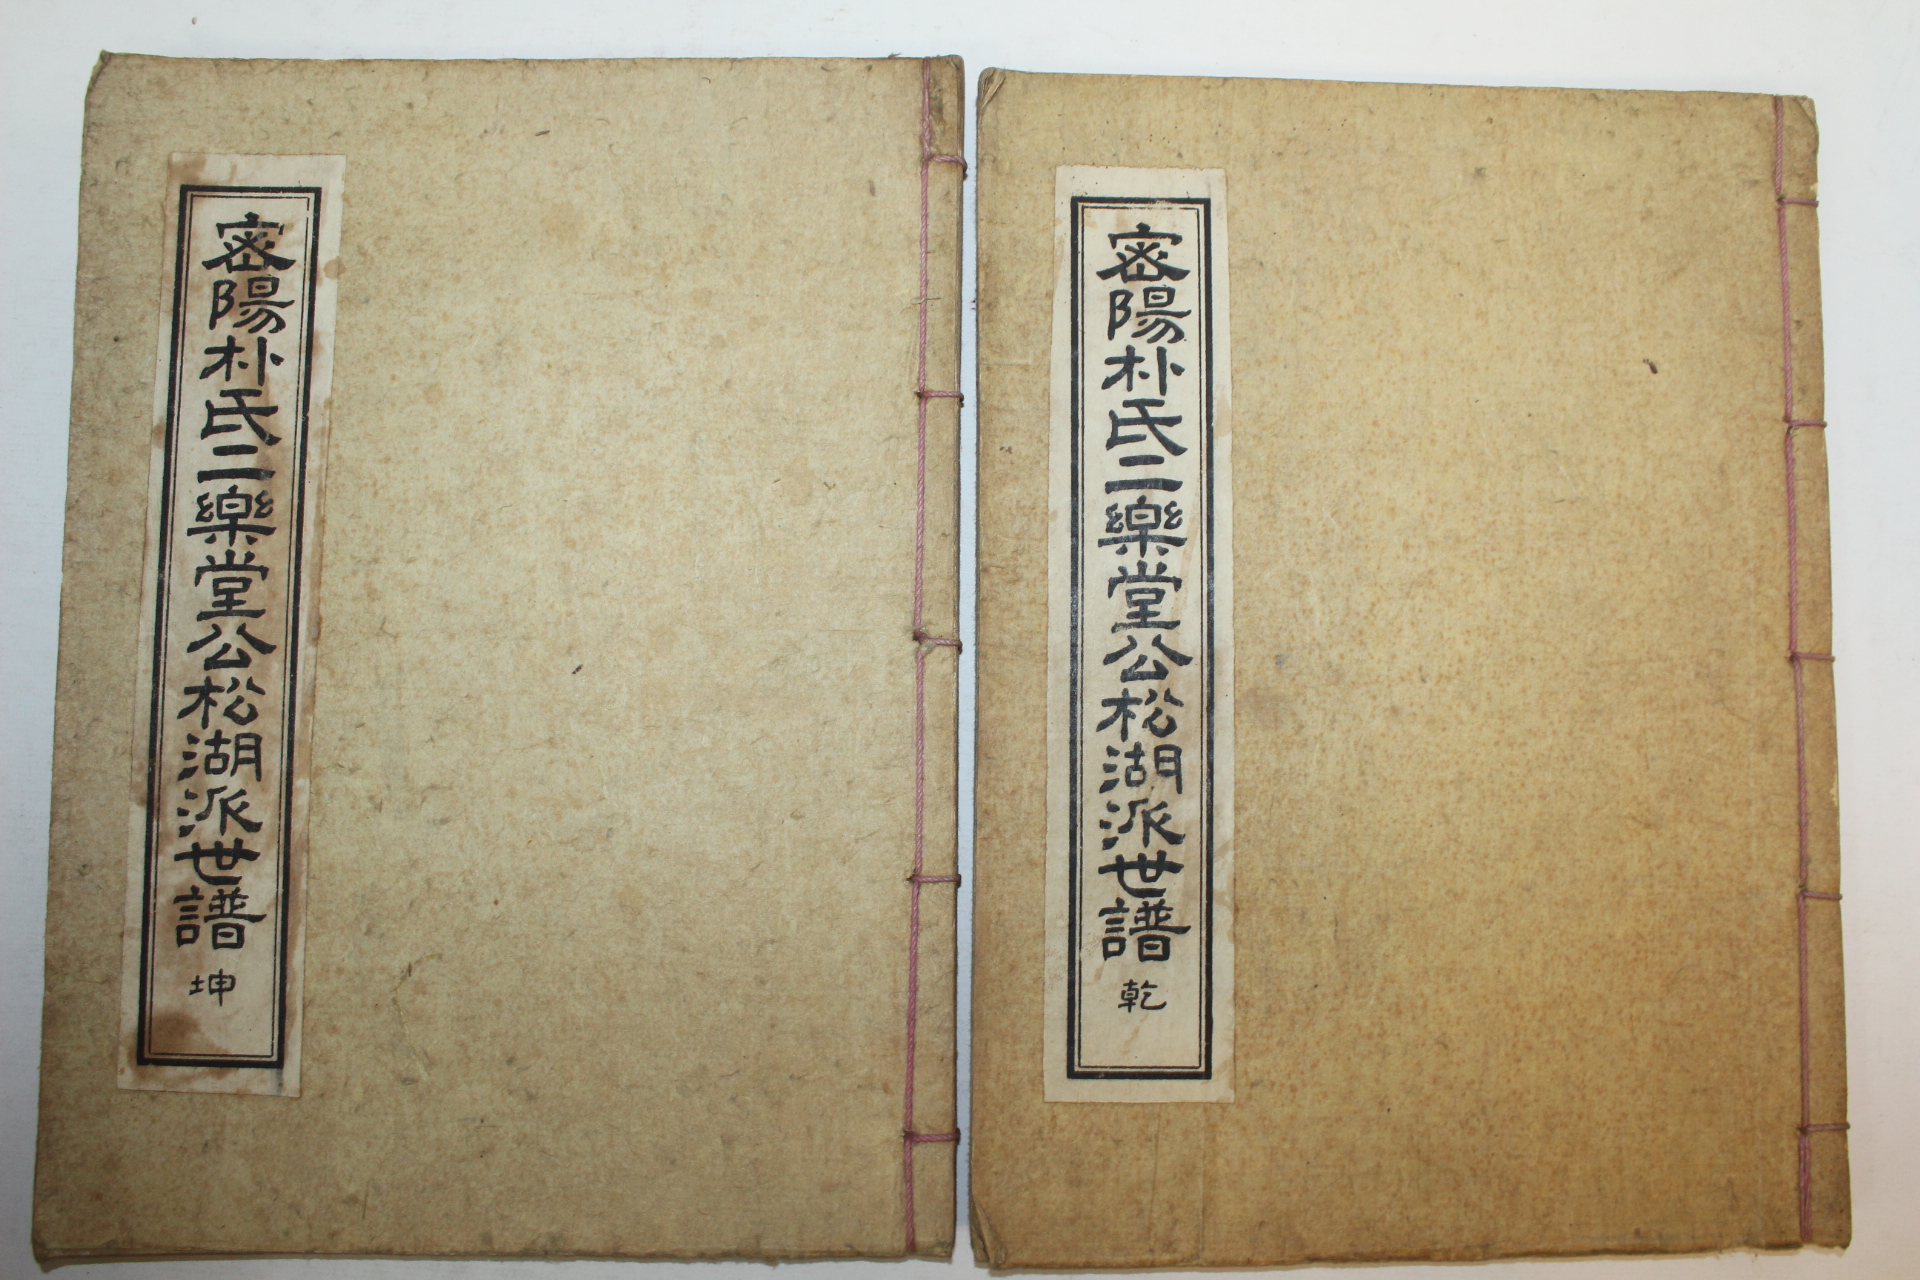 密陽朴氏二樂堂公松湖派世譜 乾
密陽朴氏二樂堂公松湖派世譜 坤